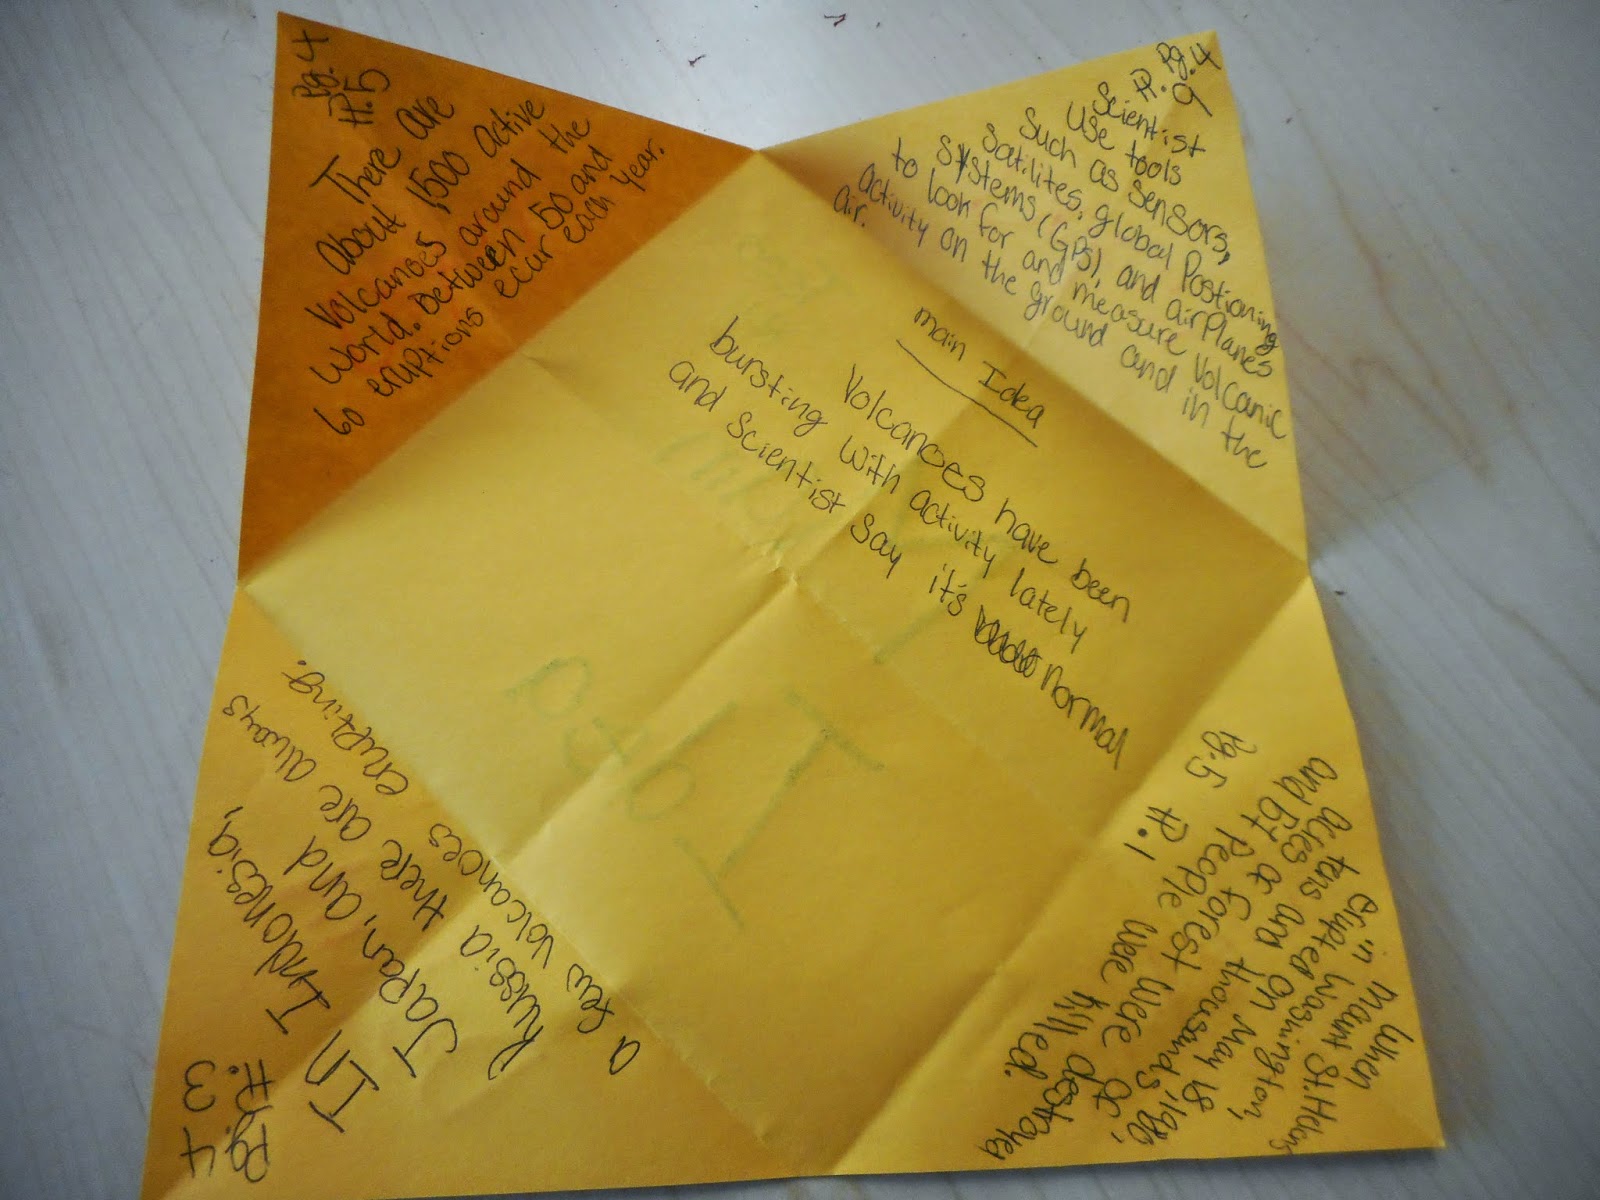 Pg. 4
P. 5
There are
about 1,500 active
Volcanoes around the
World. Between 50 and
60 eruptions ecur each year.
Pg. 4
P. 9
Scientist
use tools
Such as sensors,
Satilites, global Postioning
Systems (GPS), and airplanes
to look for and measure Volcanic
activity on the ground and in the
air.
main Idea
Volcanoes have been
bursting with activity lately
and Scientist say it's normal
Pg. 4
P. 3
In Indonesia,
Japan, and
Russia there are always
a few volcanoes erupting.
Pg. 5
P. 1
When
maunt St. Helens
in Wasinington,
erupted on May 18, 1980,
tens and thousands of
acres a forest were destroyed
and 57 People were killed.